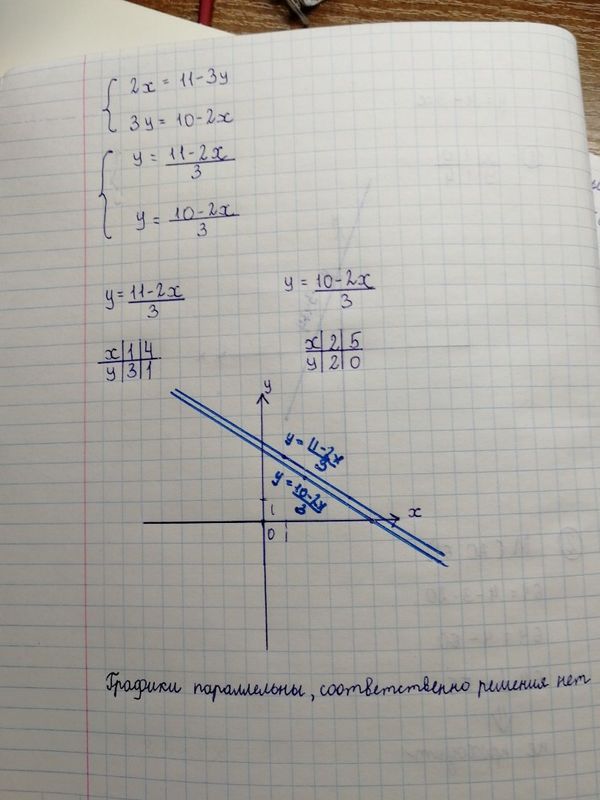 2x = 11-3y
3y = 10-2x
y = 11-2x / 3
y = 10-2x / 3
y = 11-2x / 3
y = 10-2x / 3
x | 1 | 4
y | 3 | 1
x | 2 | 5
y | 2 | 0
y
y = 11-2x / 3
y = 10-2x / 3
x
1
0 1
Графики параллельны, соответственно решения нет